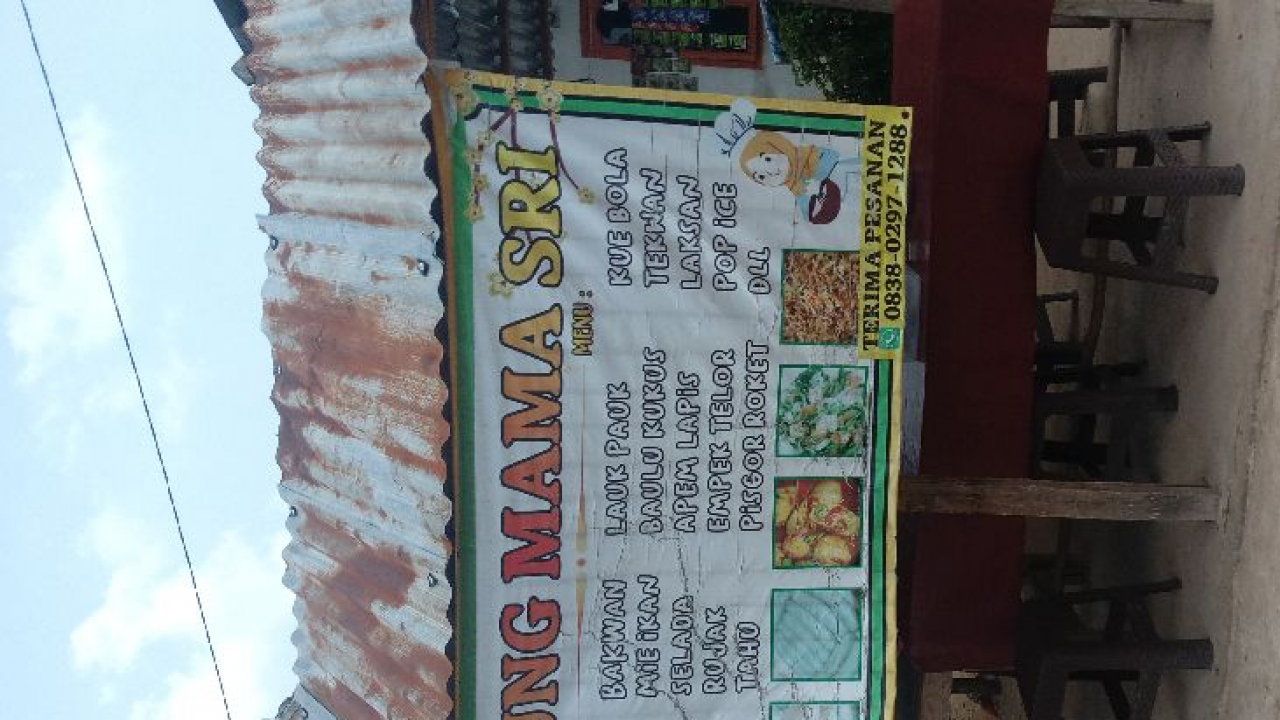 UNG MAMA SRI
MENU :
BAKWAN
MIE IKAN
SELADA
RUJAK
TAHU
LAUK PAUK
BAULU KUKUS
APEM LAPIS
EMPEK TELOR
PISGOR ROKET
KUE BOLA
TEKWAN
LAKSAN
POP ICE
DLL
TERIMA PESANAN
0838-0297-1288